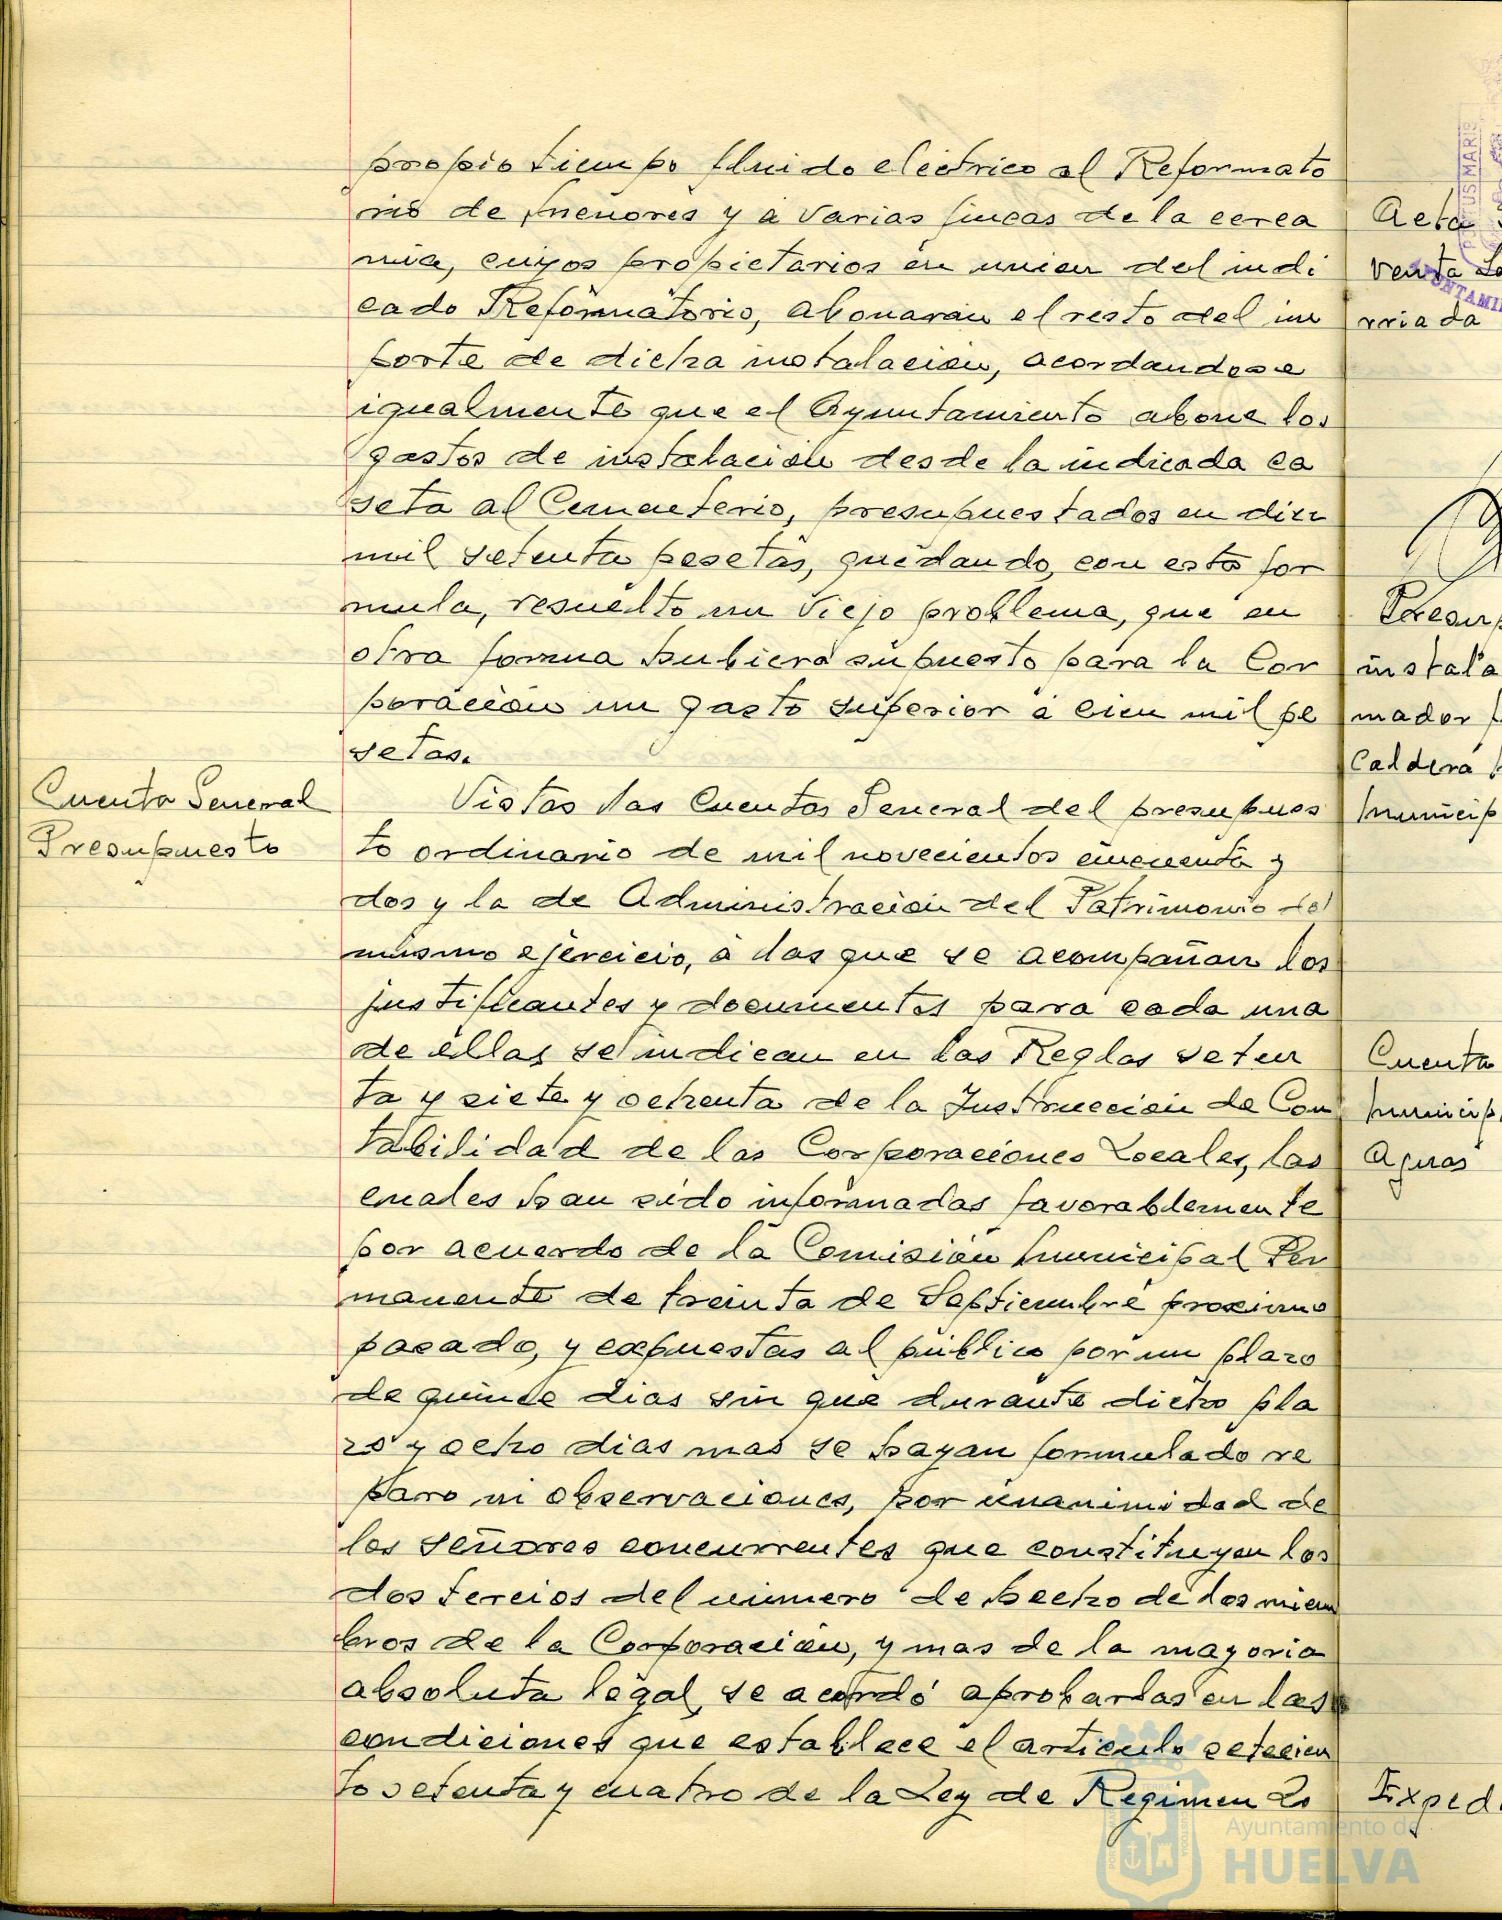 propio tiempo fluido electrico al Reformato
rio de Menores y a varias fincas de la cerca
nia, cuyos propietarios en union del indi
cado Reformatorio, abonaran el resto del im
porte de dicha instalación, acordandose
igualmente que el Ayuntamiento abone los
gastos de instalación desde la indicada ca
seta al Cementerio, presupuestados en diez
mil setenta pesetas, quedando, con esta for
mula, resuelto un viejo problema, que en
otra forma hubiera supuesto para la Cor
poración un gasto superior a cien mil pe
setas.
Cuenta General
Presupuesto
Vistas las Cuentas General del presupues
to ordinario de mil novecientos cincuenta y
dos y la de Administración del Patrimonio del
mismo ejercicio, a las que se acompañan los
justificantes y documentos para cada una
de éllas se indican en las Reglas seten
ta y siete y ochenta de la Instrucción de Con
tabilidad de las Corporaciones Locales, las
cuales han sido informadas favorablemente
por acuerdo de la Comisión Municipal Per
manente de treinta de Septiembre proximo
pasado, y expuestas al público por un plazo
de quince dias sin que durante dicho pla
zo y ocho dias mas se hayan formulado re
paro ni observaciones, por unanimidad de
los señores concurrentes que constituyen los
dos tercios del número de hecho de los miem
bros de la Corporación, y mas de la mayoria
absoluta legal, se acordó aprobarlas en las
condiciones que establece el articulo setecien
to setenta y cuatro de la Ley de Regimen Lo
Acta
venta
rriada
Presup
instala
mador
Caldera
Municip
Cuenta
Municip
Aguas
Exped
Ayuntamiento de
HUELVA